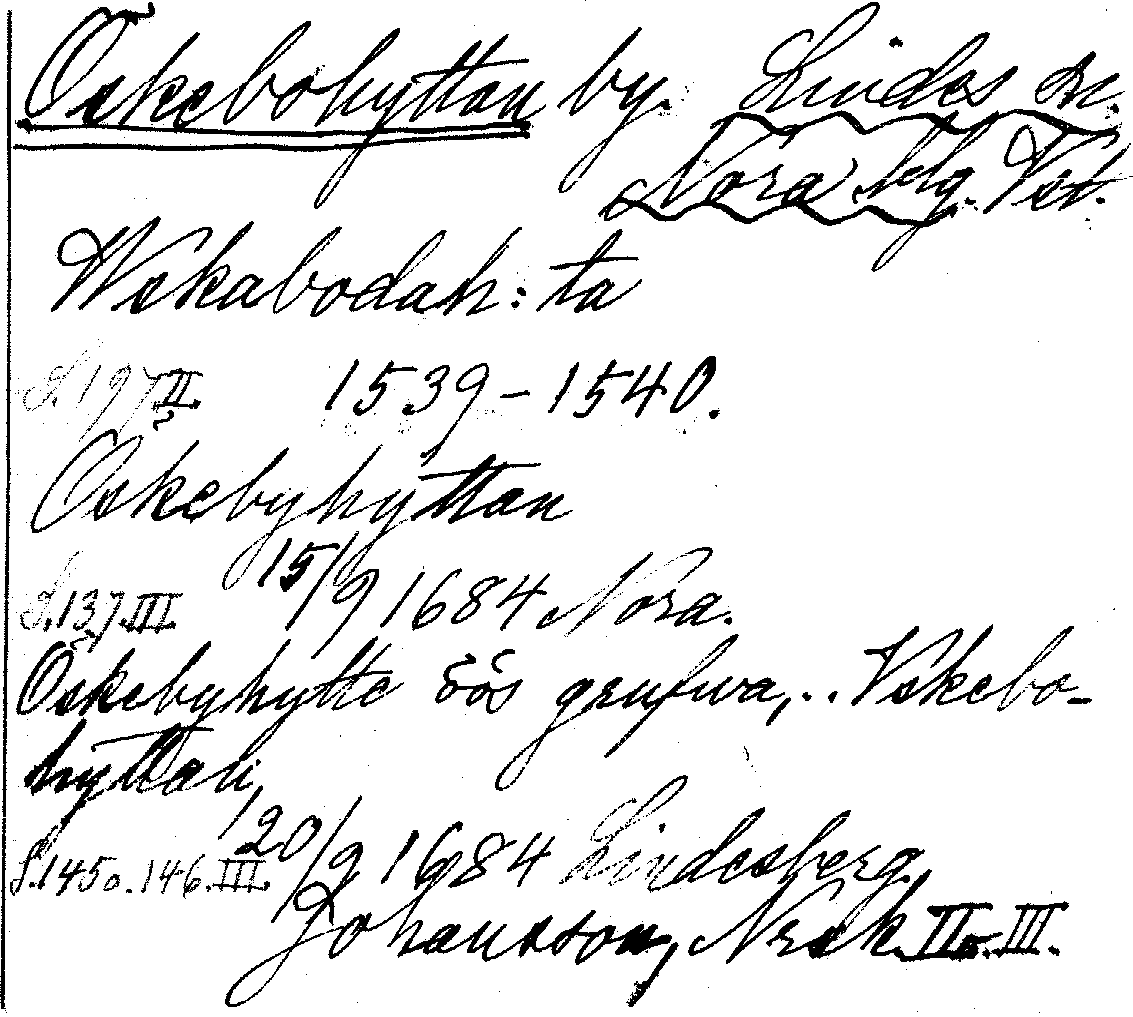 Öskebohyttan by. Lindes sn.
Nora blg. Vst.
Wskabodah:ta
S. 197 II. 1539–1540.
Öskebyhyttan
S. 137 III. 15/9 1684 Nora.
Öskebyhytte öös grufwa, .. Vskebo-
hyttan
S. 145 o. 146. III. 20/9 1684 Lindesberg,
Johansson, Nrsk. II o. III.